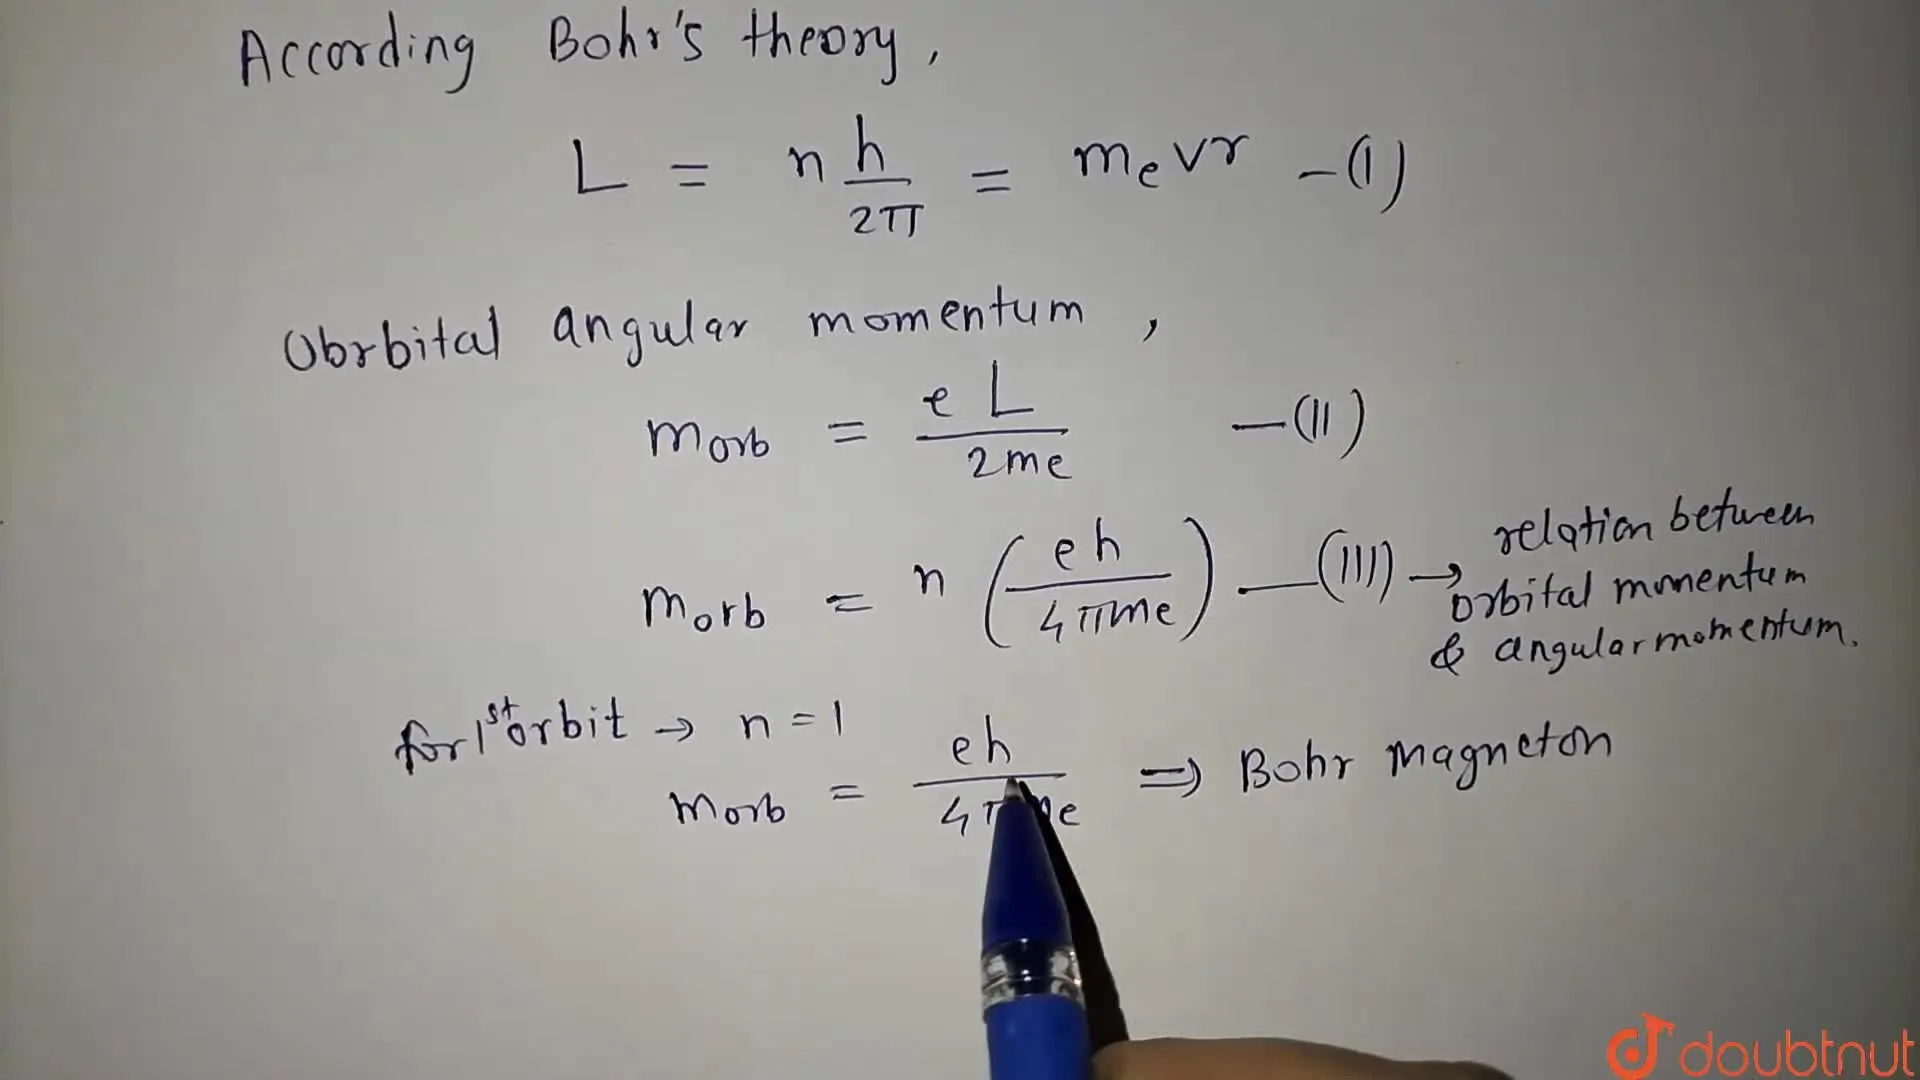 According Bohr's theory,
L = n h/2π = mevr -(I)
Obrbital angular momentum,
morb = eL/2me -(II)
morb = n (eh/4πme) —(III) → relation between
orbital momentum
& angular momentum.
for 1st orbit → n = 1
morb = eh/4πme ⇒ Bohr Magneton
doubtnut